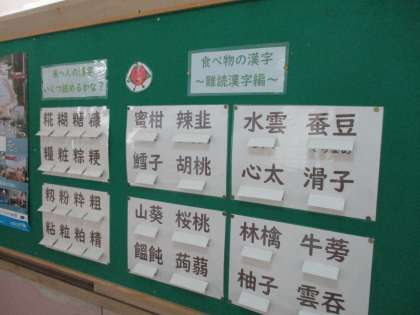 米へんの漢字
いくつ読めるかな?
糀 糊 糖 糠
糧 粧 粽 粳
籾 粉 粋 粗
粘 粒 粕 精
食べ物の漢字
~難読漢字編~
蜜柑 辣韭
鱈子 胡桃
山葵 桜桃
饂飩 蒟蒻
水雲 蚕豆
心太 滑子
林檎 牛蒡
柚子 雲呑